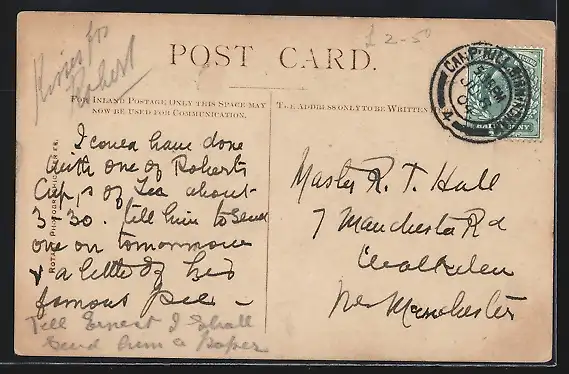 Kisses for
Robert
£2-50
POST CARD.
FOR INLAND POSTAGE ONLY THIS SPACE MAY
NOW BE USED FOR COMMUNICATION.
THE ADDRESS ONLY TO BE WRITTEN HERE
CAMP HILL
HALFPENNY
ROTARY PHOTOGRAPHIC SERIES.
I could have done
with one of Roberts
Cup,s of Tea about
3-30. tell him to Send
one on tomorrow
& a little of his
famous
Tell Ernest I Shall
Send him a Paper
Master R. T. Hall
7 Manchester Rd
Walkden
Nr Manchester